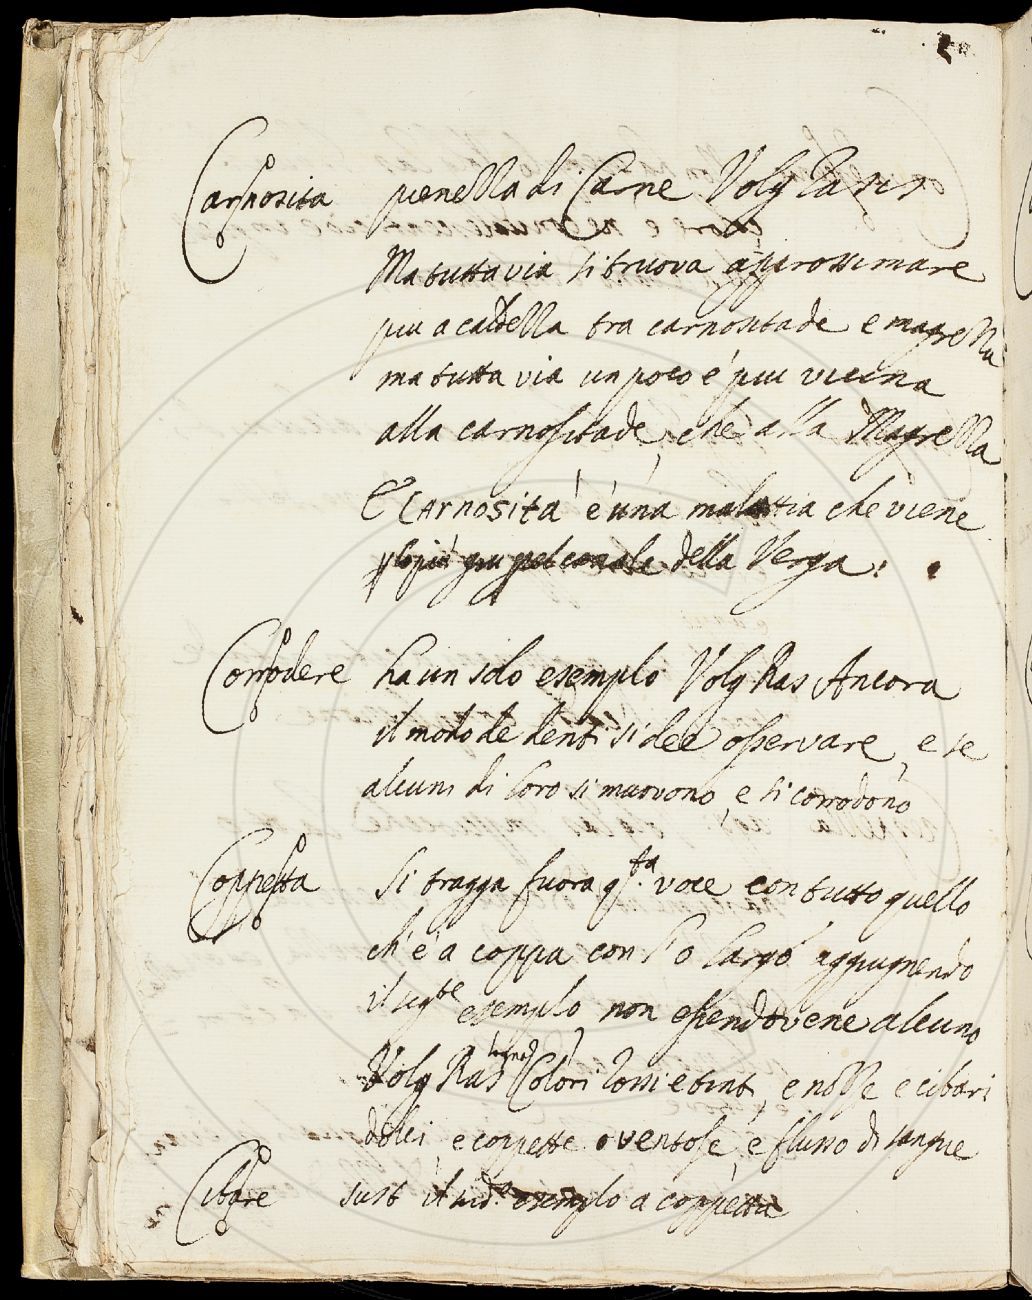 Carnosita pienezza di Carne Volg Rasis
Ma tuttavia si truova approssimare
piu a caldezza tra carnositade e magrezza
ma tutta via un poco é piu vicina
alla carnositade, che alla Magrezza
E Carnosità é una malattia che viene
della Verga:
Corrodere ha un solo esemplo Volg Ras Ancora
il modo de denti si dee osservare, e se
alcuni di loro si muovono, e si corrodono
Coppetta Si tragga fuora q.sta voce con tutto quello
ch'é a coppa con l'o largo aggiugnendo
il seg.te esemplo non essendovene alcuno
Volg Ras Colori rossi e tinti, e nozze e cibari
dolci, e coppette o ventose, e flusso di sangue
Cibare sust il med.o esemplo a coppetta